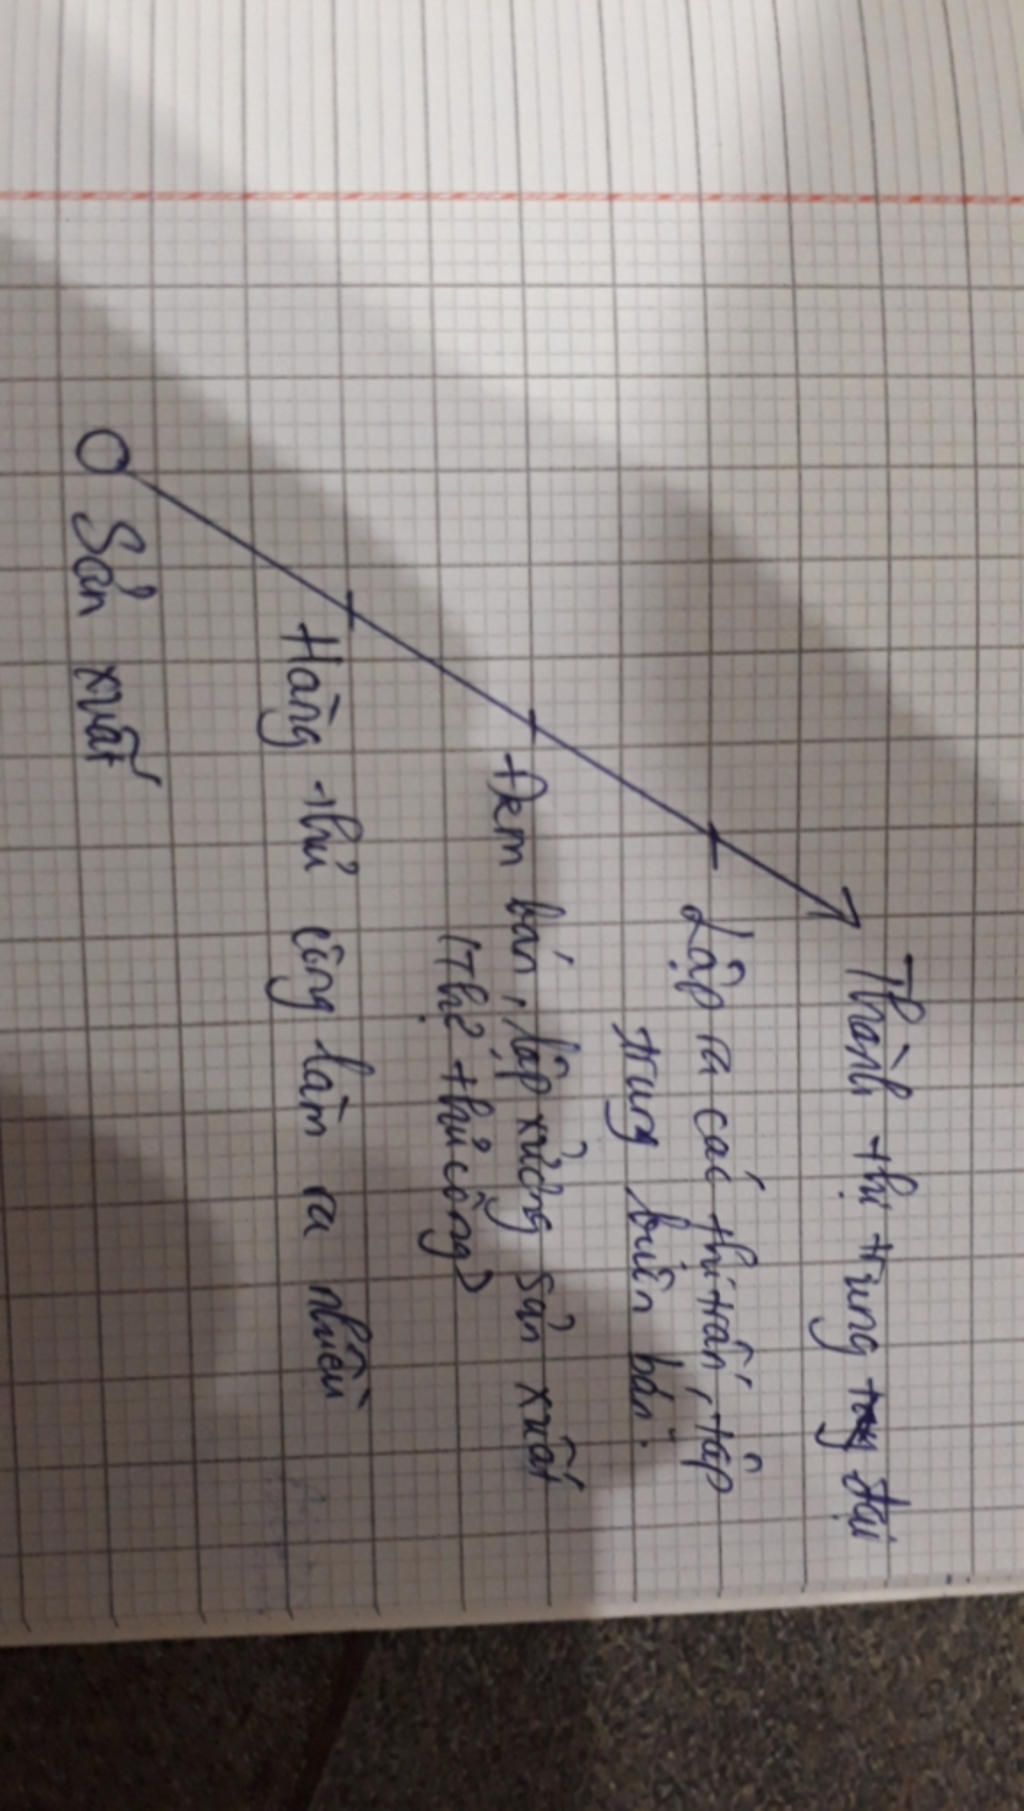 Thành thị trung đại
Lập ra các thị trấn, tập
trung buôn bán.
Đem bán, lập xưởng sản xuất
(Thợ thủ công)
Hàng thủ công làm ra nhiều
Sản xuất